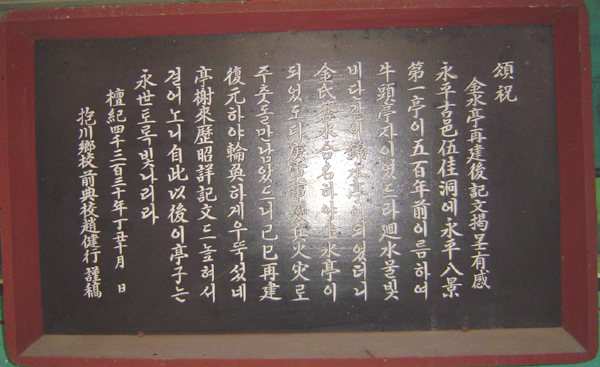 頌祝
金水亭再建後記文揭呈有感
永平古邑伍佳洞에永平八景
第一亭이五百年前이름하여
牛頭亭자이었드라廻水물빛
비단같이錦水亭이되었더니
金氏蒼水合名하야金水亭이
되었도다庚寅事變兵火災로
주춧돌만남았드니己巳再建
復元하야輪奐하게우뚝섰네
亭榭來歷昭詳記文드높혀서
걸어노니自此以後이亭子는
永世토록빛나리라
檀紀四千三百三十年丁丑十月 日
抱川鄕校前典校趙健行 謹稿